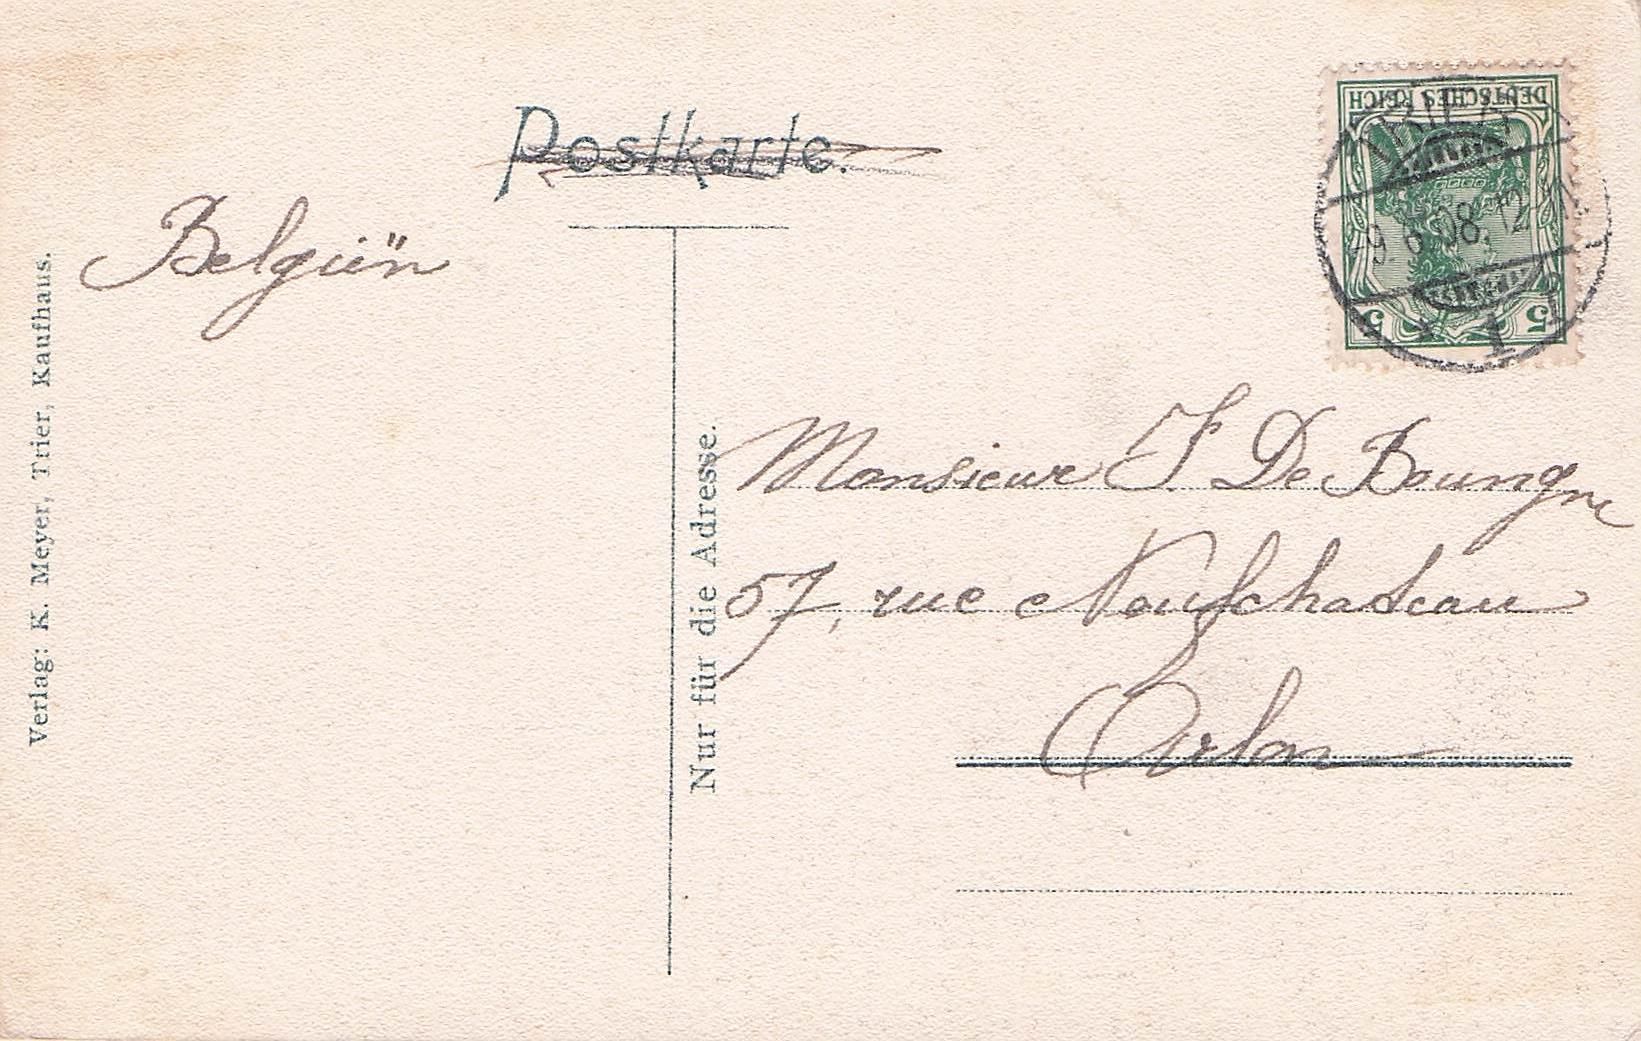 Postkarte.
Belgiën
Verlag: K. Meyer, Trier, Kaufhaus.
Nur für die Adresse.
DEUTSCHES REICH
5 5
TRIER
9.6.08.12-1
1
Monsieur J. De Boungne
57, rue Neufchateau
Arlon